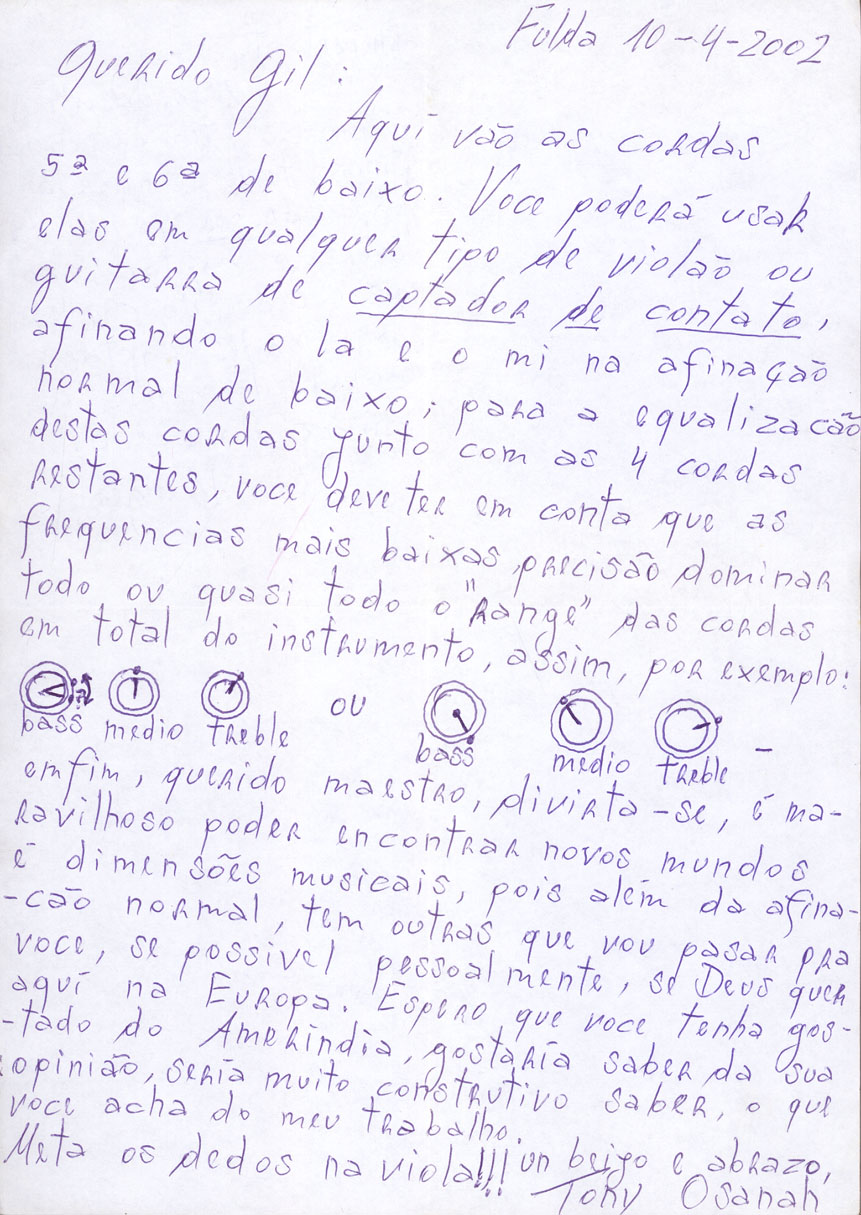 Fulda 10-4-2002
Querido Gil:
Aquí vão as cordas
5ª e 6ª de baixo. Voce poderá usar
elas em qualquer tipo de violão ou
guitarra de captador de contato,
afinando o la e o mi na afinação
normal de baixo; para a equalizacão
destas cordas junto com as 4 cordas
restantes, voce deve ter em conta que as
frequencias mais baixas precisão dominar
todo ou quasi todo o "range" das cordas
em total do instrumento, assim, por exemplo:
bass medio treble ou bass medio treble -
emfim, querido maestro, divirta-se, é ma-
ravilhoso poder encontrar novos mundos
é dimensões musicais, pois além da afina-
-cão normal, tem outras que vou pasar pra
voce, se possivel pessoalmente, se Deus quer
aquí na Europa. Espero que voce tenha gos-
-tado do Amerindia, gostaría saber da sua
opinião, sería muito construtivo saber, o que
voce acha do meu trabalho.
Meta os dedos na viola!!! un beijo e abrazo,
Tony Osanah